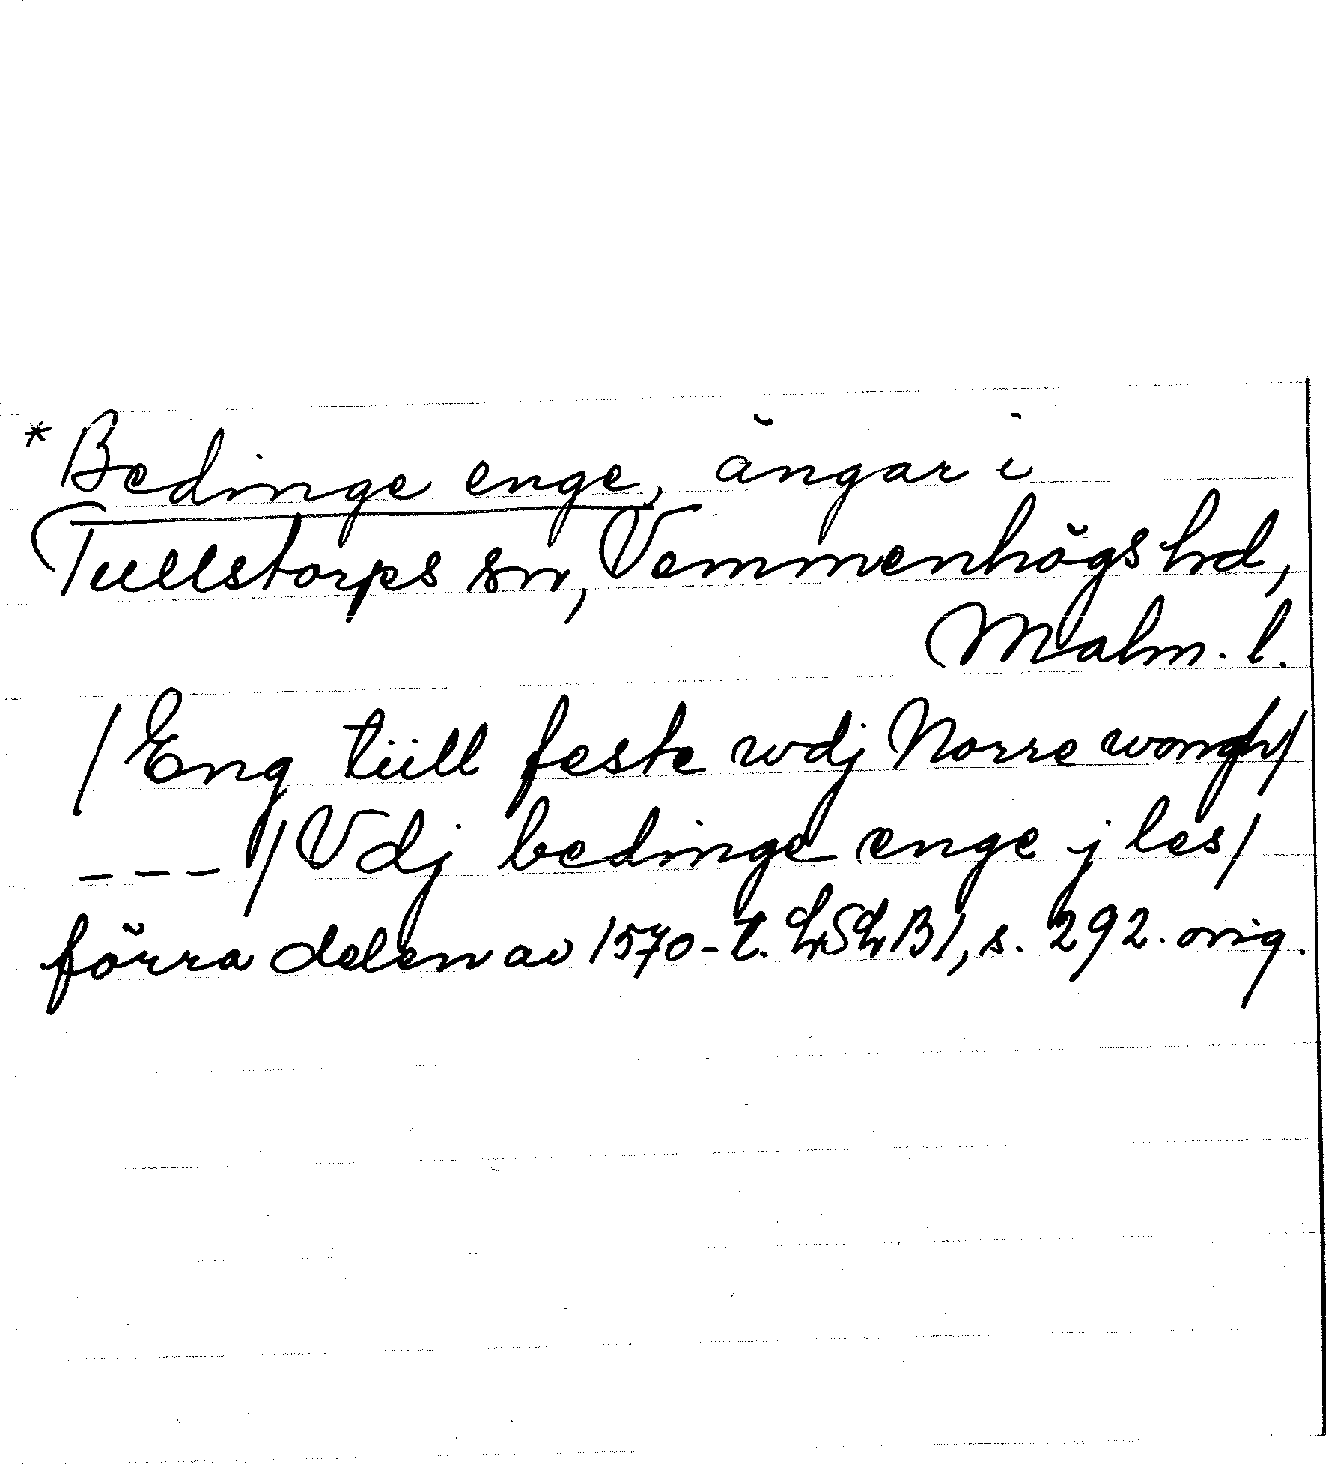 * Bedinge enge, ängar i
Tullstorps sn, Vemmenhögs hd,
Malm. l.
/Eng tüll feste wdj Norre wongh/
---/Vdj bedinge enge j les/
förra delen av 1570-t. LSLB1, s. 292. orig.